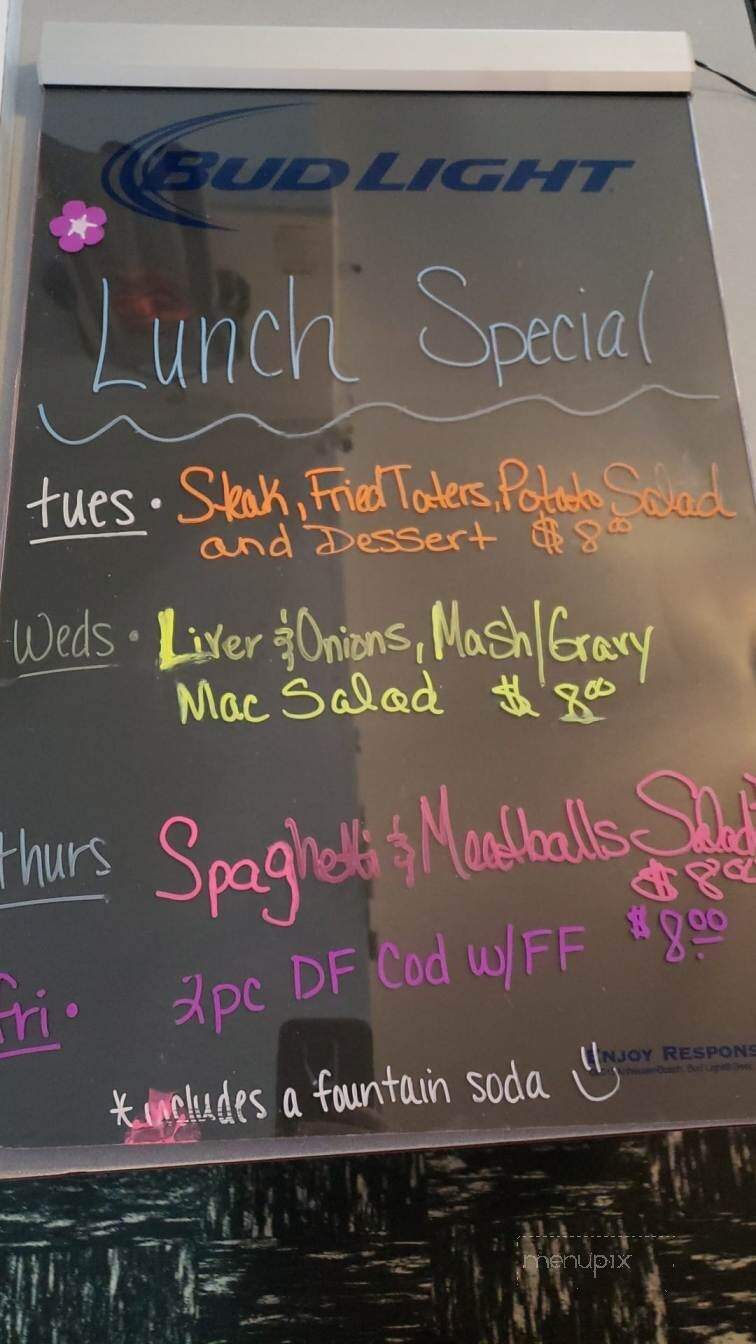 BUD LIGHT
Lunch Special
tues. Steak, Fried Taters, Potato Salad
and Dessert $8.00
Weds. Liver & Onions, Mash/Gravy
Mac Salad $8.00
thurs Spaghetti & Meatballs Salad
$8.00
fri. 2pc DF Cod w/FF $8.00
ENJOY RESPONS
*includes a fountain soda
menupix